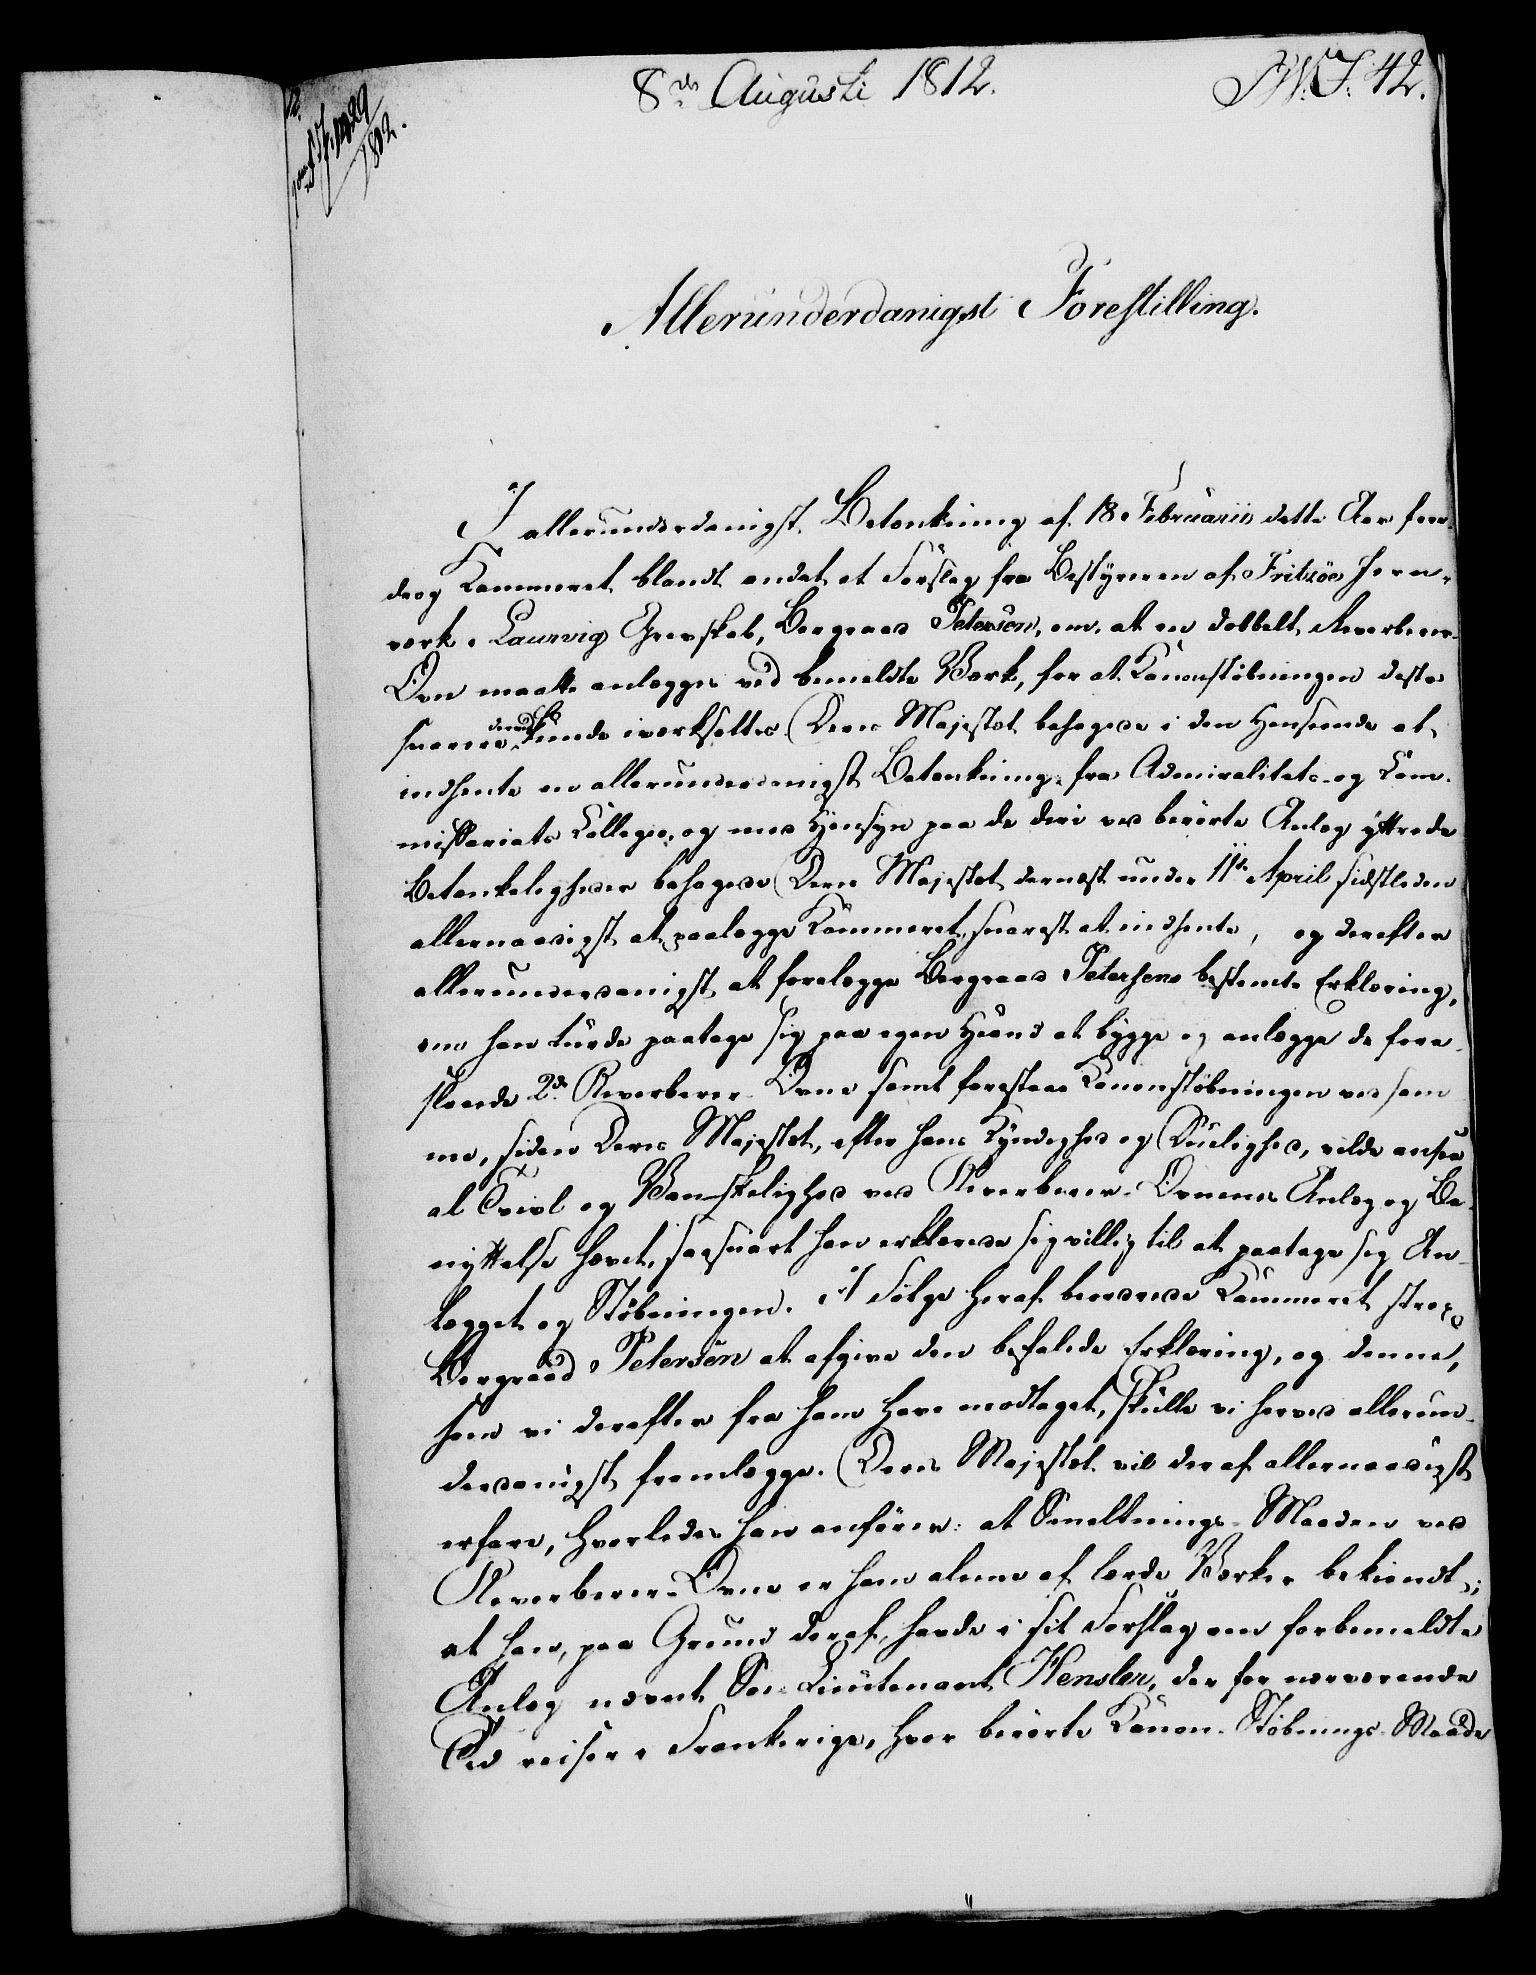 8de Augusti 1812.
42.
1812.
Allerunderdanigst Forestilling.
I allerunderdanigst Betænkning af 18 Februarii dette Aar fore-
drog Kammeret blandt andet et Forslag fra Bestyreren af Fritzöe Jern-
værk i Laurvigs Grevskab, Bergraad Petersen, om, at en dobbelt Reverbeer-
Ovn maatte anlægges ved bemeldte Værk, for at Kanonstøbningen desto
snarere dermed kunde iværksettes. Deres Majestæt behagede i den Henseende at
indhente en allerunderdanigst Betænkning fra Admiralitets- og Kom-
missariats Collegio, og med Hensyn paa de deri ved berörte Anlæg yttrede
Betænkeligheder behagede Deres Majestæt dernæst under 11te April sidstleden
allernaadigst at paalægge Kammeret, snarest at indhente, og derefter
allerunderdanigst at forelægge Bergraad Petersens bestemte Erklæring,
om han turde paatage sig paa egen Haand at bygge og anlægge de fore-
slaaede 2de Reverbeer-Ovne samt forestaae Kanonstøbningen ved sam-
me, siden Deres Majestæt, efter hans Kyndighed og Duelighed, vilde ansee
al Tvivl og Vanskelighed ved Reverbeer-Ovnenes Anlæg og Be-
nyttelse hævet, saasnart han erklærede sig villig til at paatage sig An-
lægget og Støbningen. I Følge heraf beordrede Kammeret strax
Bergraad Petersen at afgive den befalede Erklæring, og denne,
som vi derefter fra ham have modtaget, skulle vi herved allerun-
derdanigst fremlægge. Deres Majestæt vil deraf allernaadigst
erfare, hvorledes han anförer: at Smeltnings-Maaden ved
Reverbeer-Ovne er ham alene af lærde Værker bekiendt;
at han, paa Grund deraf, havde i sit Forslag om forbemeldte
Anlæg nævnt Søe-Lieutenant Hensler, der for nærværende
Tid reiser i Frankerige, hvor berörte Kanon-Støbnings-Maade